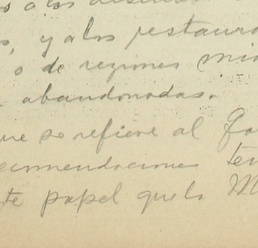 y a los restaura
o de regiones mi
abandonadas.
que se refiere al
comendaciones ten
te papel que la M